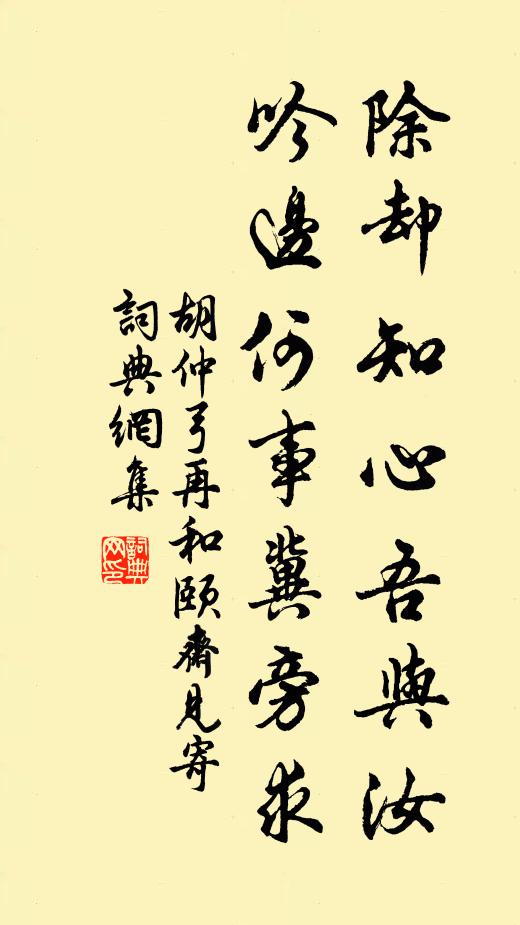 除却知心吾與汝
吟邊何事冀旁求
胡仲弓再和頤齋見寄
詞典網集
詞典網印